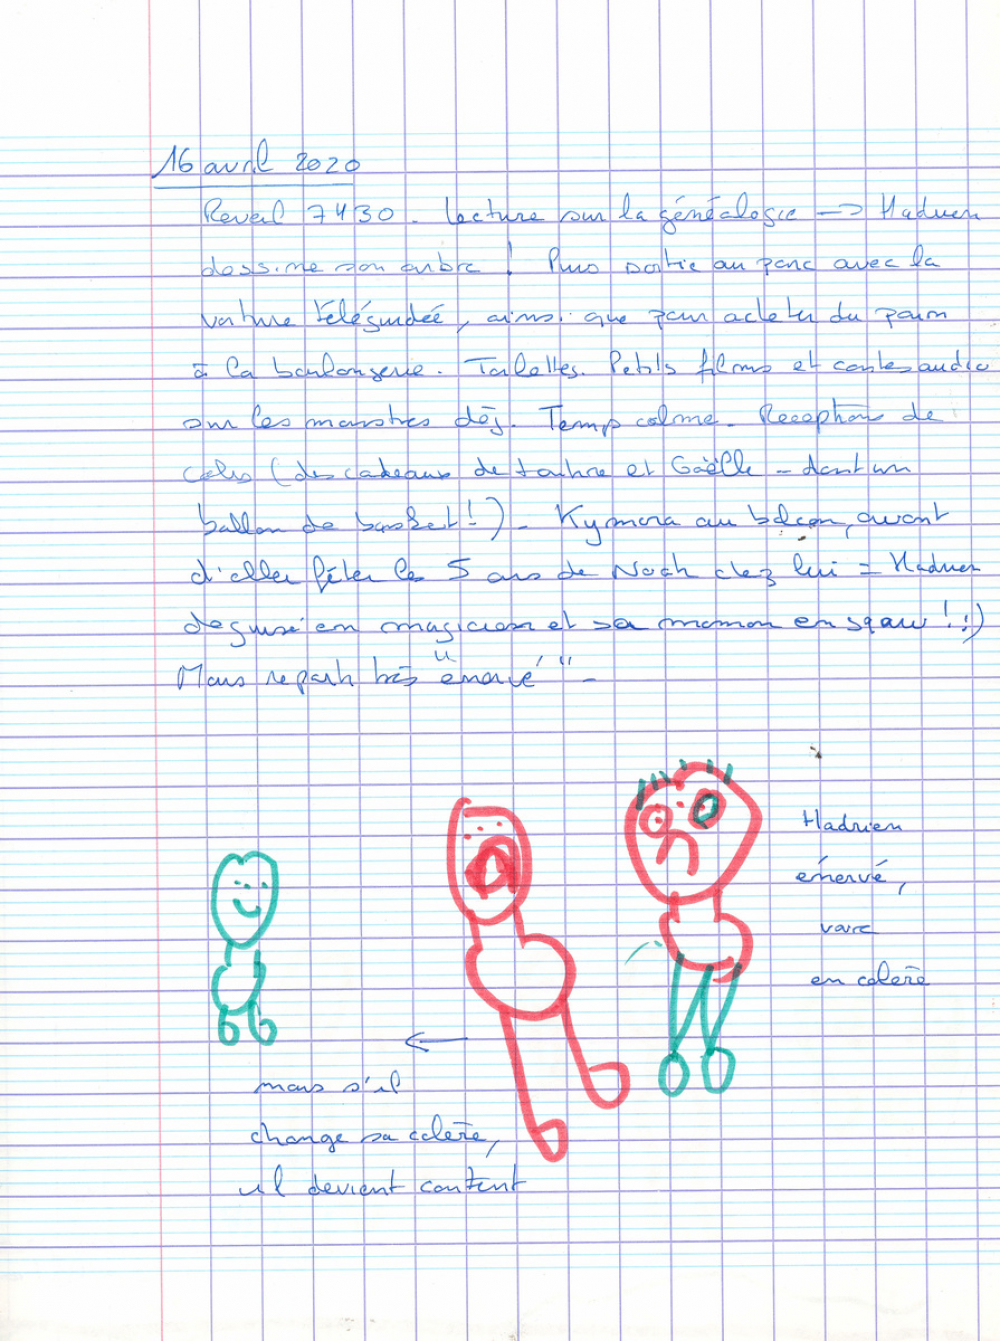 16 avril 2020
Reveil 7H30. Lecture sur la généalogie -> Hadrien
dessine son arbre ! Puis sortie au parc avec la
voiture téléguidée, ainsi que pour acheter du pain
à la boulangerie. Toilettes. Petits films et contes audio
sur les monstres déj. Temp calme. Reception de
colis (des cadeaux de et Gaëlle - dont un
ballon de basket !) - Kymora au balcon, avant
d'aller fêter les 5 ans de Noah chez lui = Hadrien
déguisé en magicien et sa maman en squaw !:)
Mais repart très "énervé" -
Hadrien
énervé,
voire
en colère
mais s'il
change sa colère,
il devient content